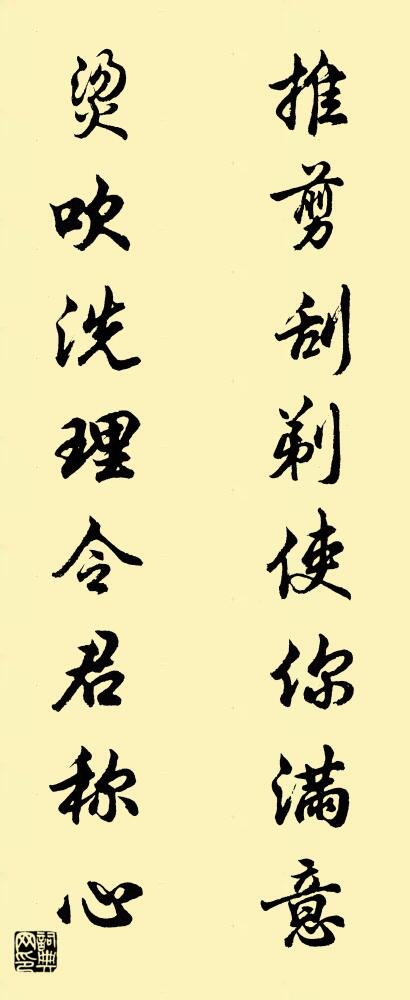 推剪刮剃使你满意
烫吹洗理令君称心
詞典网印